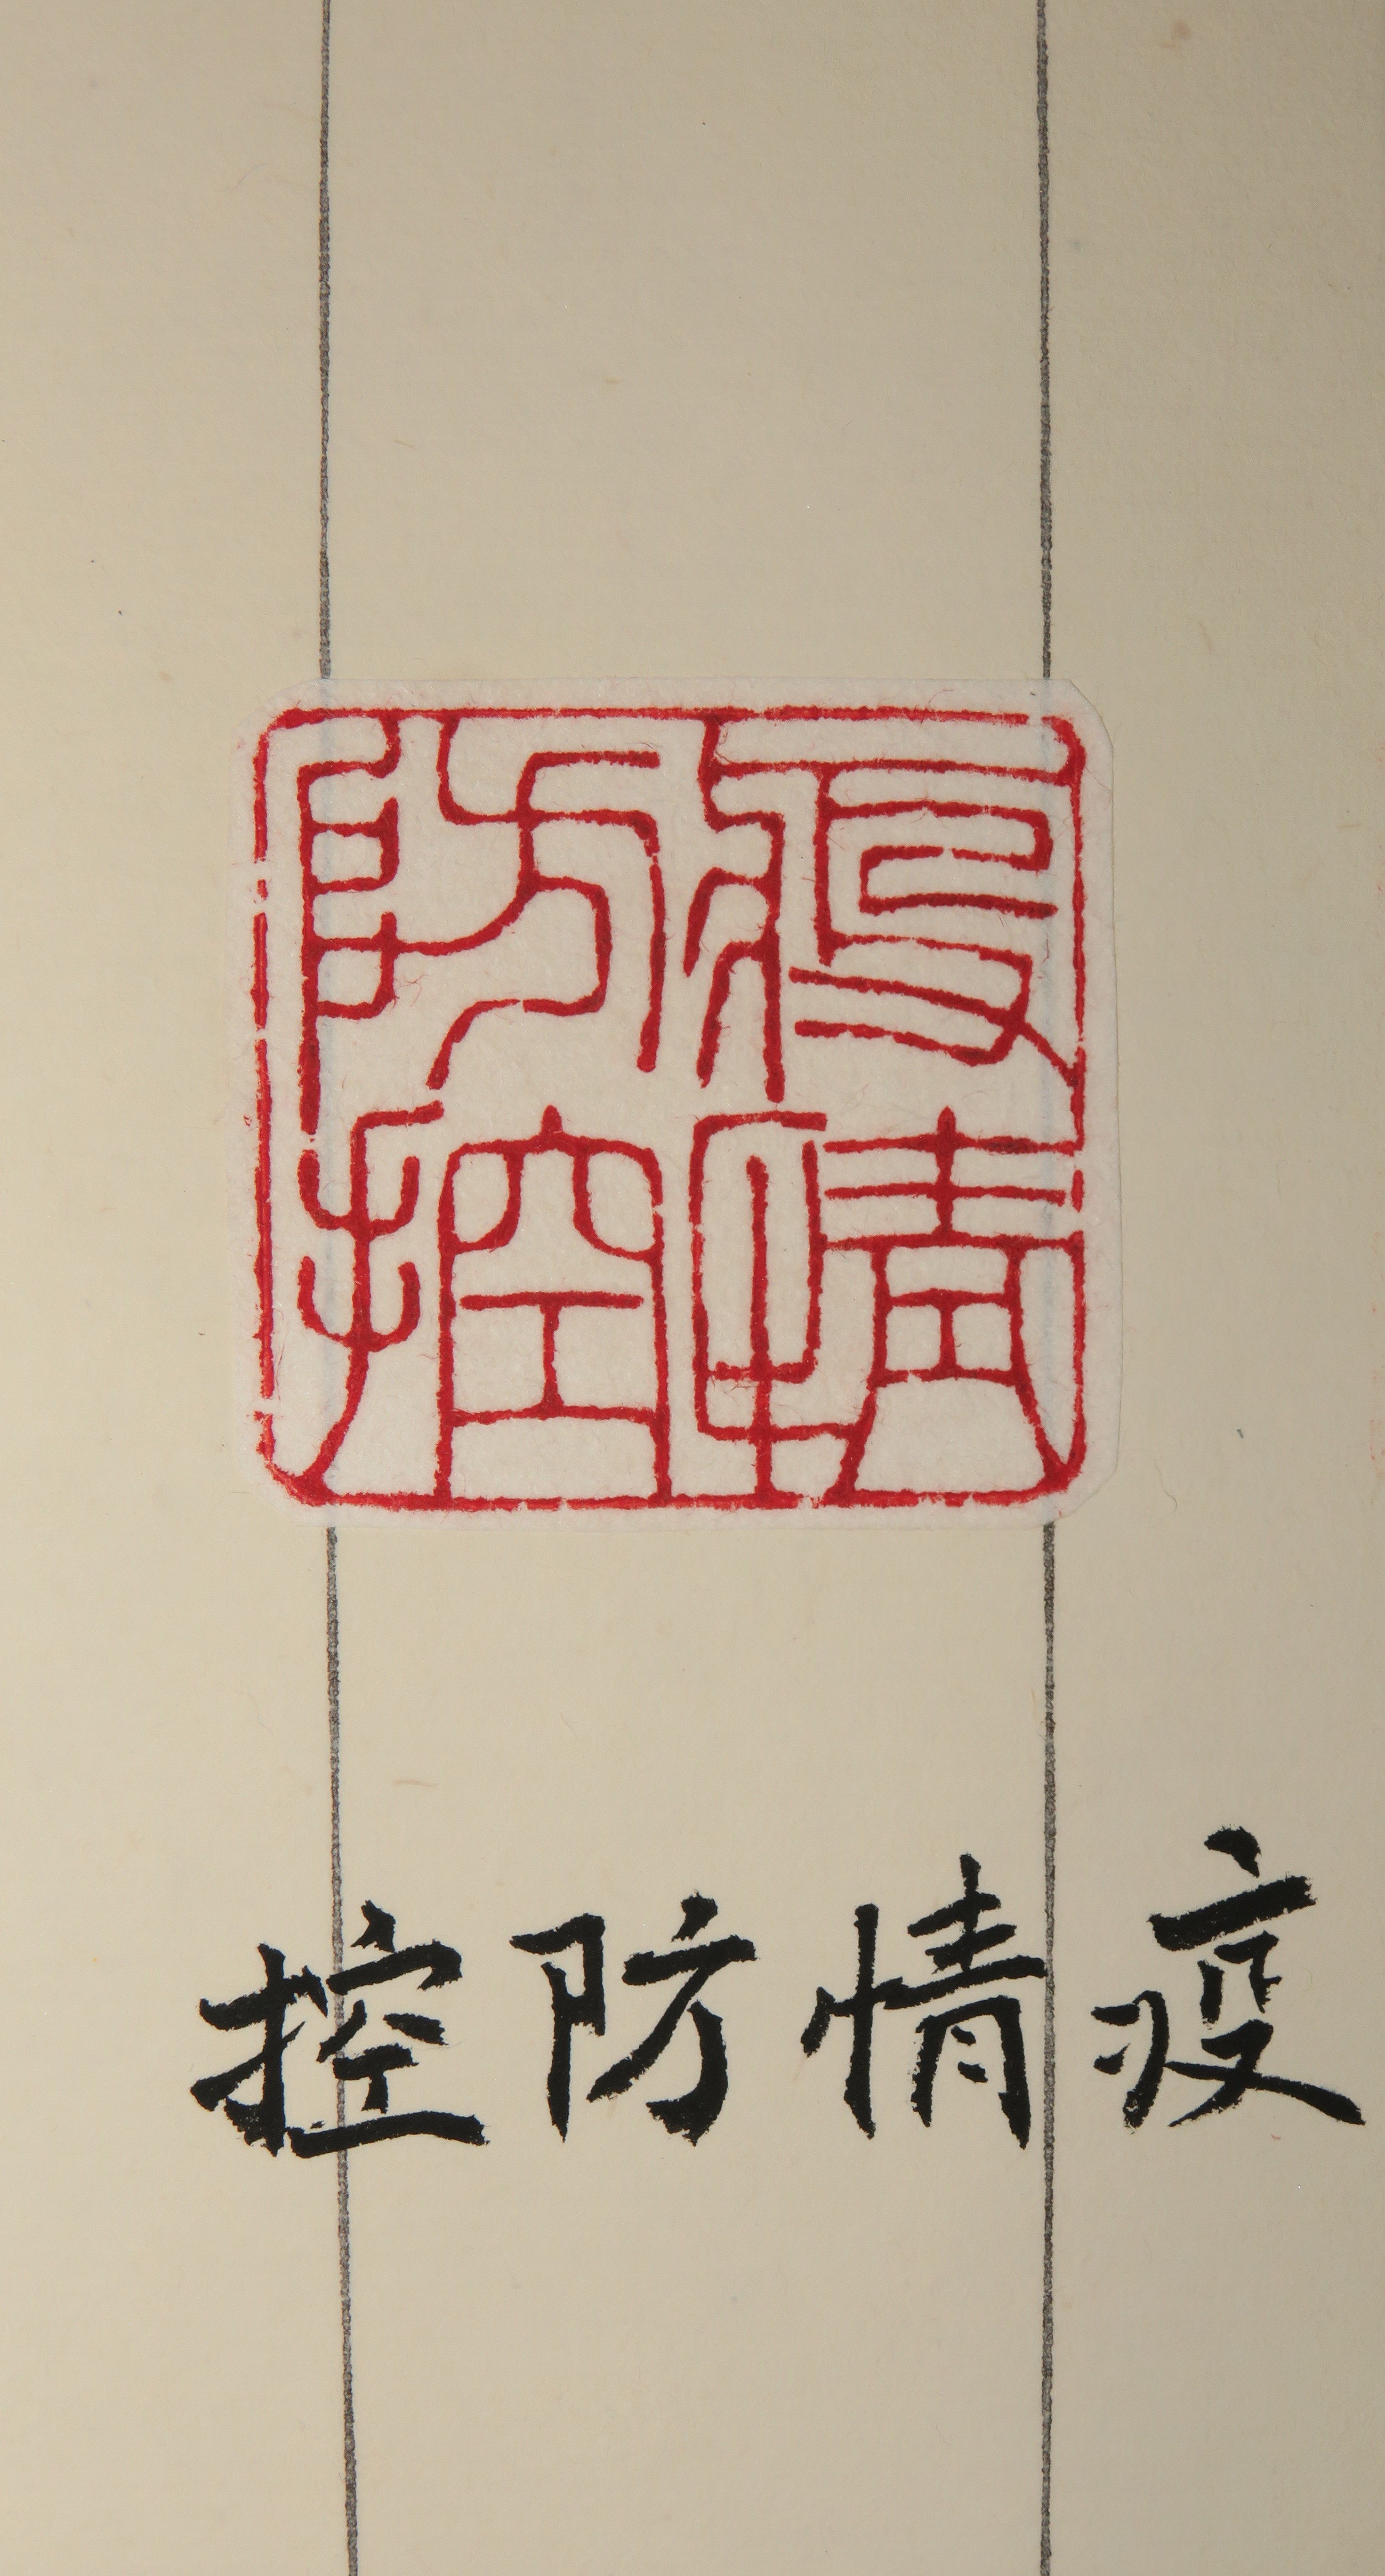 疫情
防控
疫情防控